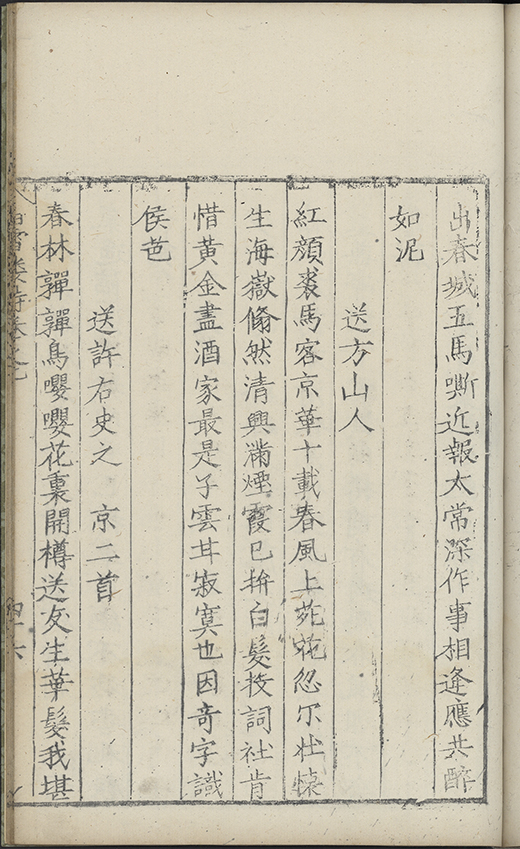 出春城五馬嘶近報太常深作事相逢應共醉
如泥
送方山人
紅顏裘馬客京華十載春風上苑花忽尔壮懐
生海嶽翛然清興滿煙霞已拚白髮投詞社肯
惜黃金盡酒家最是子雲甘寂寞也因竒字識
侯芭
送許右史之　京二首
春林鄿鄿鳥嚶嚶花裏開樽送友生華髮我堪
白雪樓詩卷之九
四十六